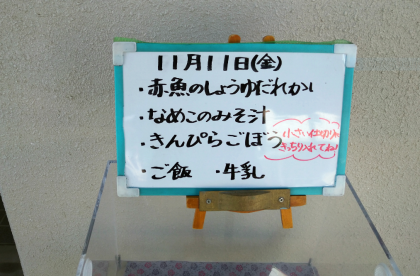 11月11日(金)
・赤魚のしょうゆだれかけ
・なめこのみそ汁
・きんぴらごぼう
・ご飯 ・牛乳
小さい
きっちり入れてね!